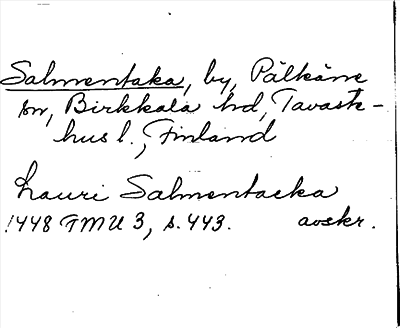 Salmentaka, by, Pälkäne
sn, Birkkala hd, Tavaste-
hus l., Finland
Lauri Salmentacka
1448 FMU 3, s. 443. avskr.